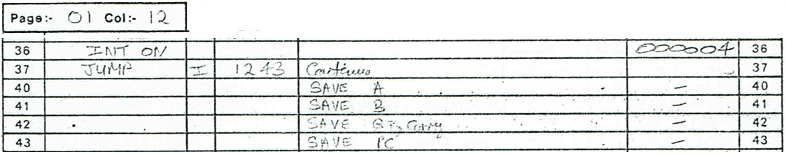 Page:- 01 Col:- 12
36 INT ON 000004 36
37 JUMP I 1243 Continue 37
40 SAVE A — 40
41 SAVE B — 41
42 SAVE Q Carry — 42
43 SAVE PC — 43